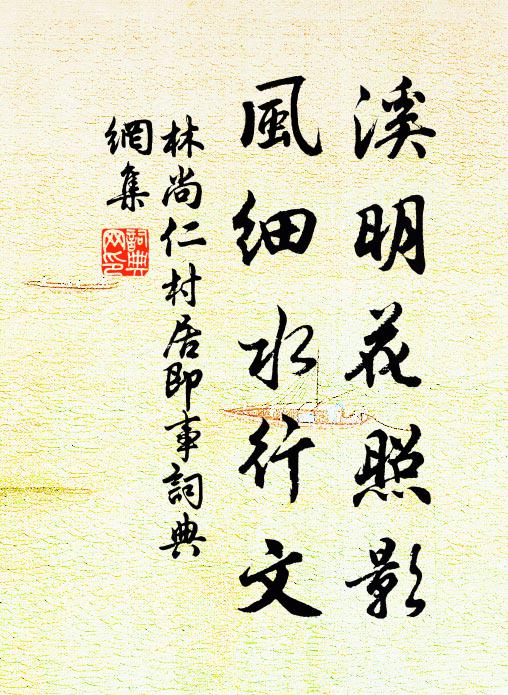 溪明花照影
風細水行文
林尚仁村居即事詞典
網集
詞典
网印